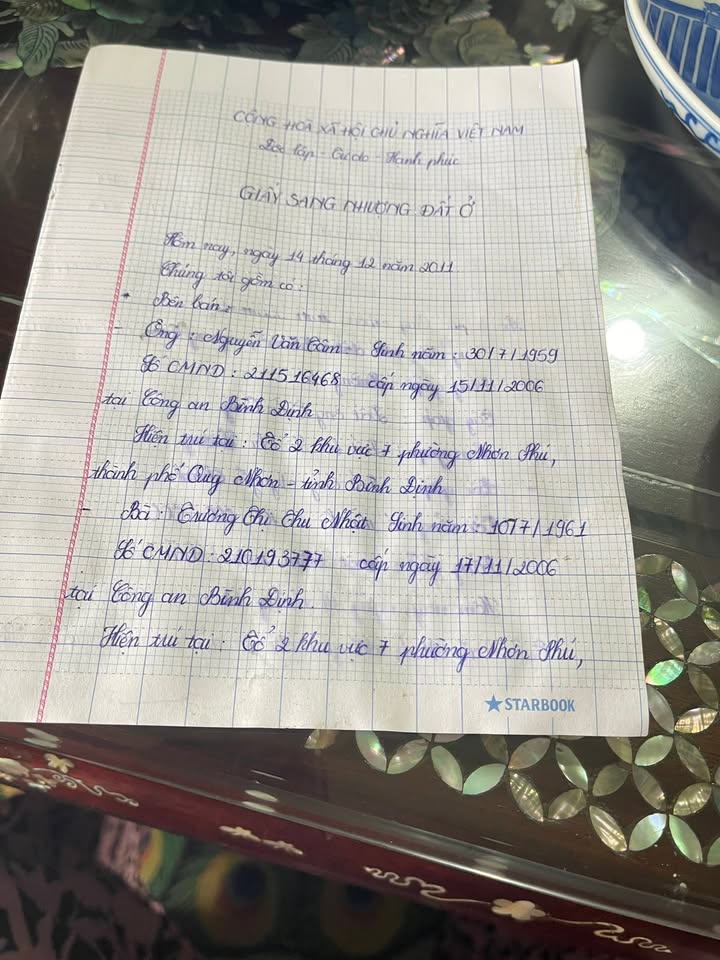 CỘNG HOÀ XÃ HỘI CHỦ NGHĨA VIỆT NAM
Độc lập - Tự do - Hạnh phúc
GIẤY SANG NHƯỢNG ĐẤT Ở
Hôm nay, ngày 14 tháng 12 năm 2011
Chúng tôi gồm có:
* Bên bán:
- Ông: Nguyễn Văn Câm Sinh năm: 30/7/1959
Số CMND: 211516468 cấp ngày 15/11/2006
tại Công an Bình Định
Hiện trú tại: Tổ 2 khu vực 7 phường Nhơn Phú,
thành phố Quy Nhơn - tỉnh Bình Định
- Bà: Trương Thị Thu Nhật Sinh năm 10/7/1961
Số CMND: 210193777 cấp ngày 17/11/2006
tại Công an Bình Định.
Hiện trú tại: Tổ 2 khu vực 7 phường Nhơn Phú,
STARBOOK